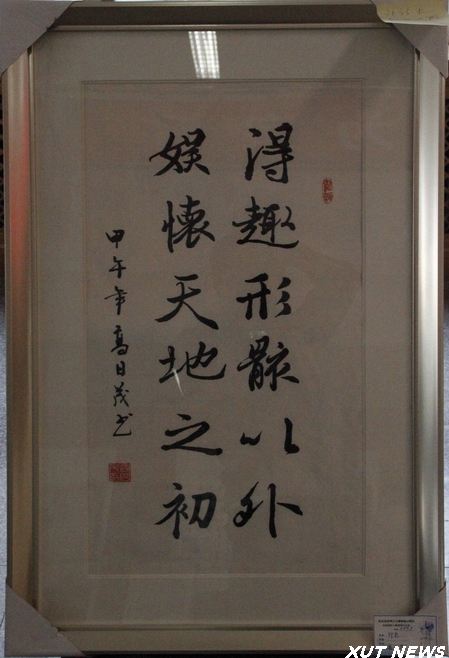 得趣形骸以外
娱懷天地之初
甲午年高日茂书
XUT NEWS